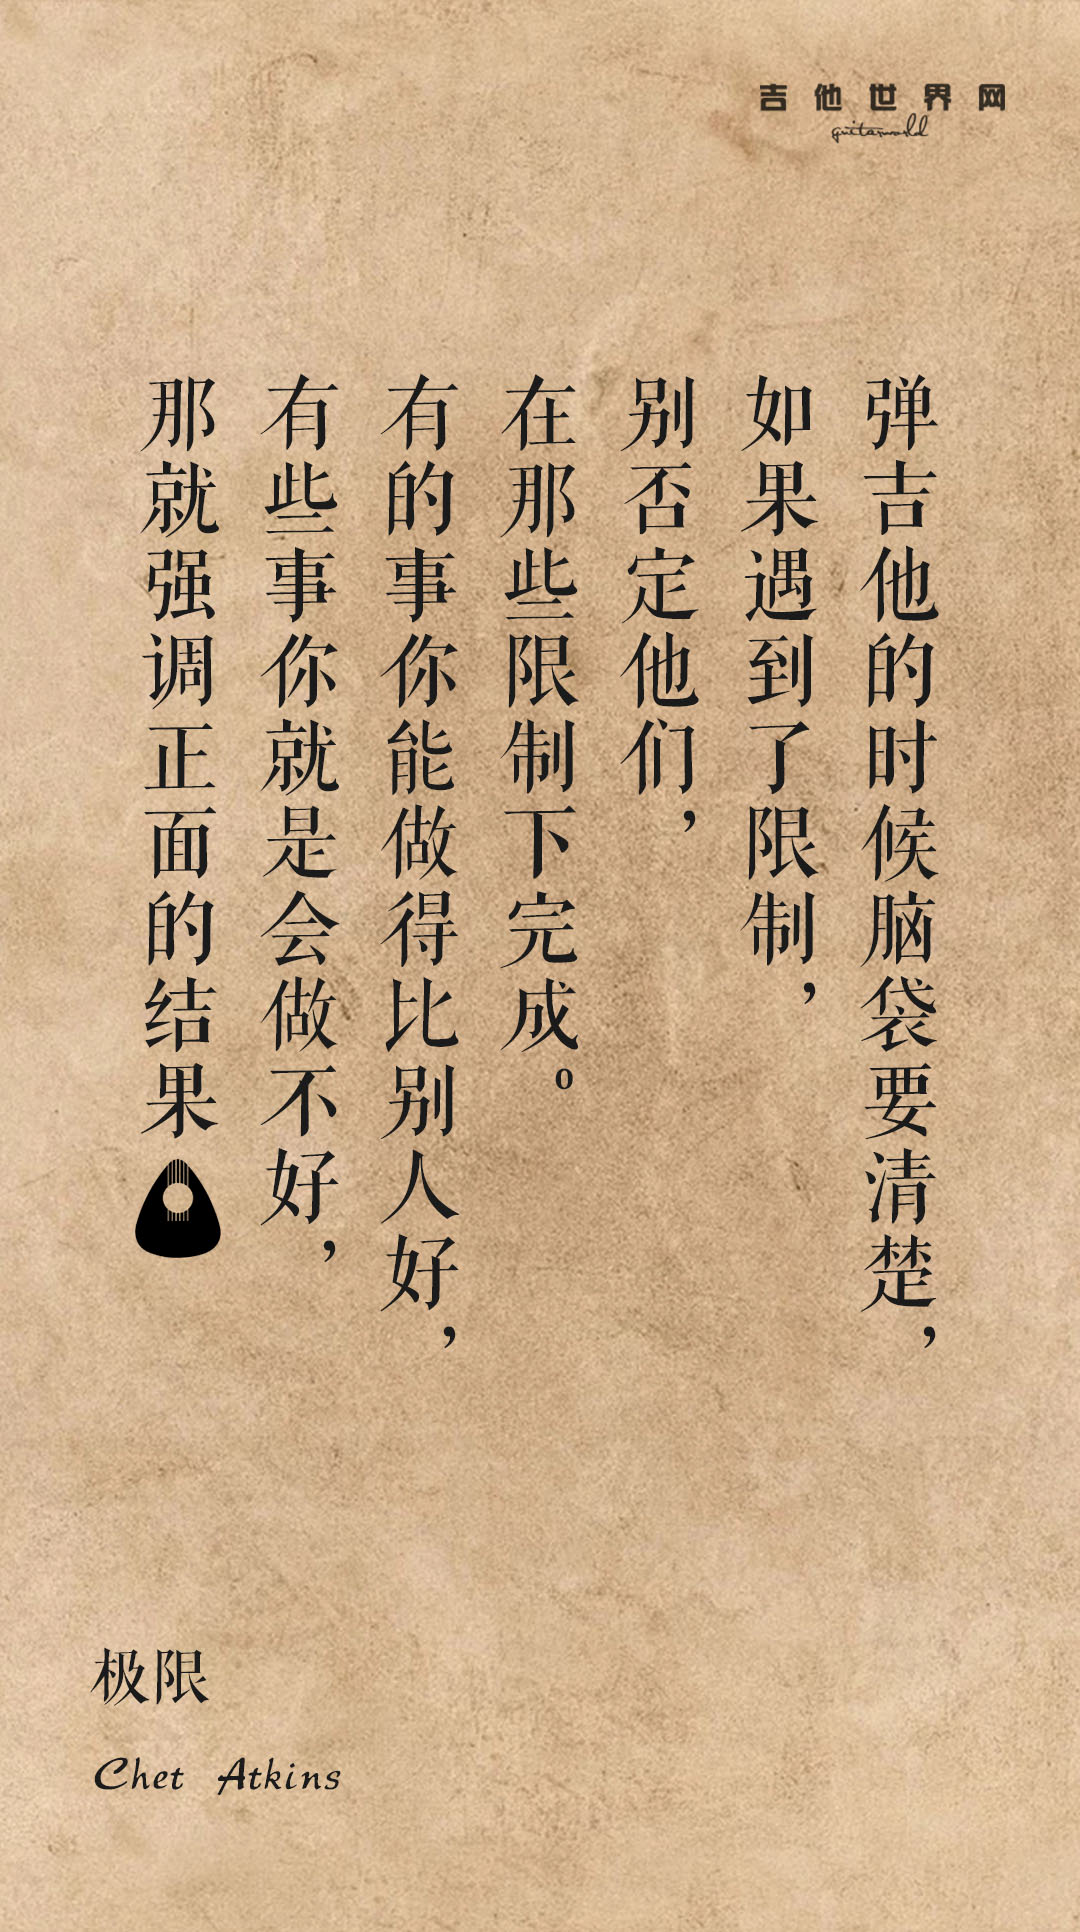 吉他世界网
guitarworld
弹吉他的时候脑袋要清楚，
如果遇到了限制，
别否定他们，
在那些限制下完成。
有的事你能做得比别人好，
有些事你就是会做不好，
那就强调正面的结果
极限
Chet Atkins